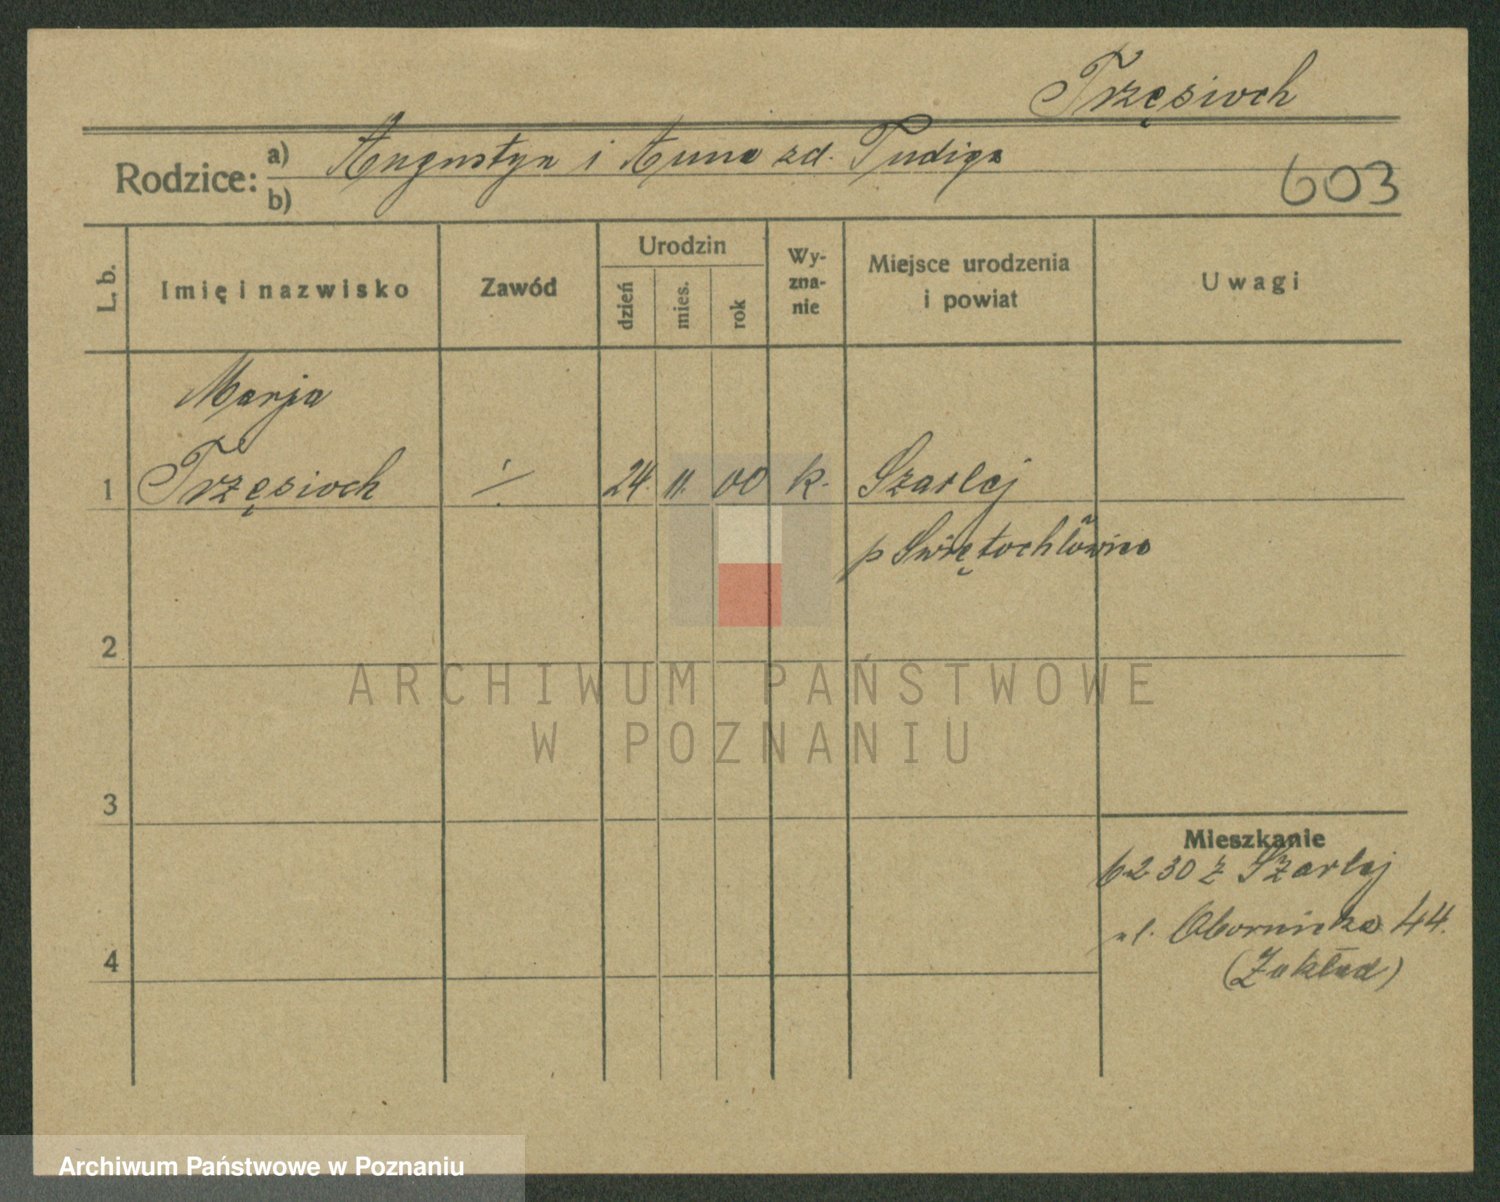 Trzęsioch
Rodzice:
a) Augustyn i Anna zd. Tudiga
b)
603
L. b.
Imię i nazwisko
Zawód
Urodzin
dzień
mies.
rok
Wy-
zna-
nie
Miejsce urodzenia
i powiat
Uwagi
Marja
1 Trzęsioch ./. 24. 11. 00 k. Szarlej
p Swiętochłowice
2
3
4
Mieszkanie
6 2 30 z Szarlej
ul. Obornicka 44.
(Zakład)
ARCHIWUM PAŃSTWOWE
W POZNANIU
Archiwum Państwowe w Poznaniu